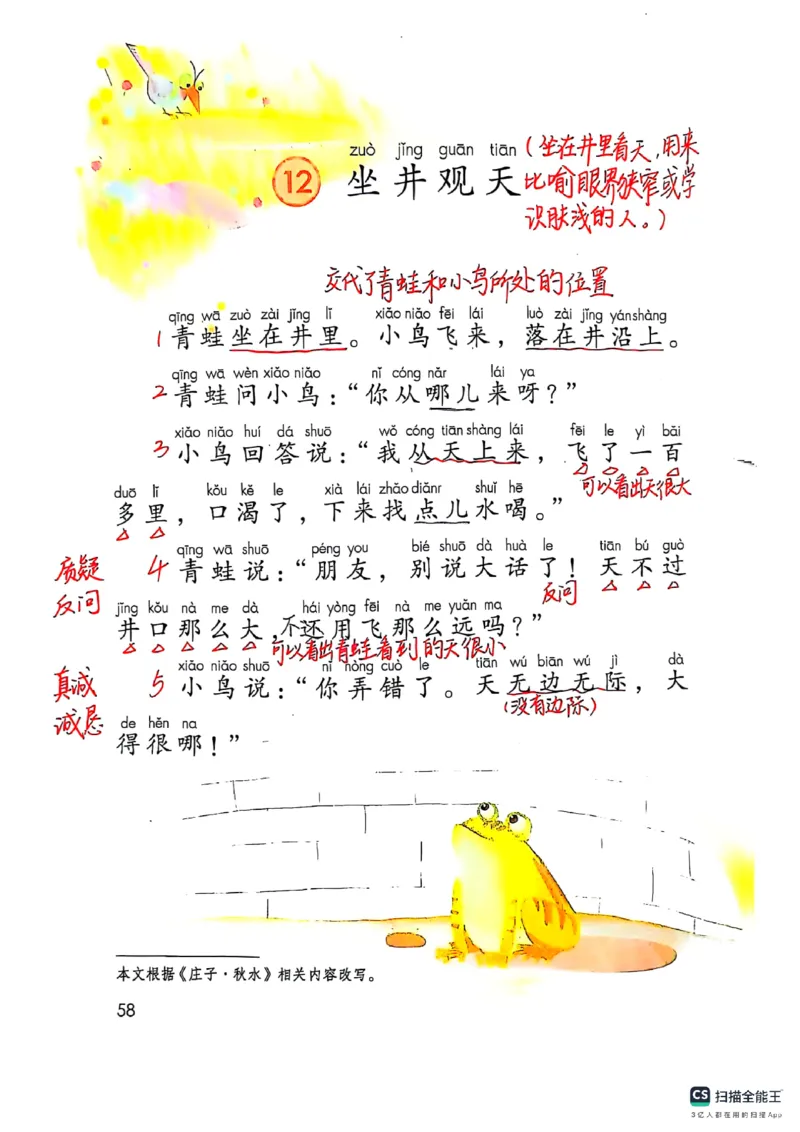 zuò jǐng guān tiān (坐在井里看天,用来
12 坐井观天 比喻眼界狭窄或学
识肤浅的人。)
交代了青蛙和小鸟所处的位置
qīng wā zuò zài jǐng lǐ xiǎo niǎo fēi lái luò zài jǐng yán shàng
1 青蛙坐在井里。小鸟飞来,落在井沿上。
qīng wā wèn xiǎo niǎo nǐ cóng nǎr lái ya
2 青蛙问小鸟:“你从哪儿来呀?”
xiǎo niǎo huí dá shuō wǒ cóng tiān shàng lái fēi le yì bǎi
3 小鸟回答说:“我从天上来,飞了一百
可以看出天很大
duō lǐ kǒu kě le xià lái zhǎo diǎnr shuǐ hē
多里,口渴了,下来找点儿水喝。”
qīng wā shuō péng you bié shuō dà huà le tiān bú guò
质疑 4 青蛙说:“朋友,别说大话了!天不过
反问 反问
jǐng kǒu nà me dà hái yòng fēi nà me yuǎn ma
井口那么大,不还用飞那么远吗?”
可以看出青蛙看到的天很小
xiǎo niǎo shuō nǐ nòng cuò le tiān wú biān wú jì dà
真诚 5 小鸟说:“你弄错了。天无边无际,大
诚恳 (没有边际)
de hěn na
得很哪!”
本文根据《庄子·秋水》相关内容改写。
58
CS 扫描全能王
3亿人都在用的扫描App